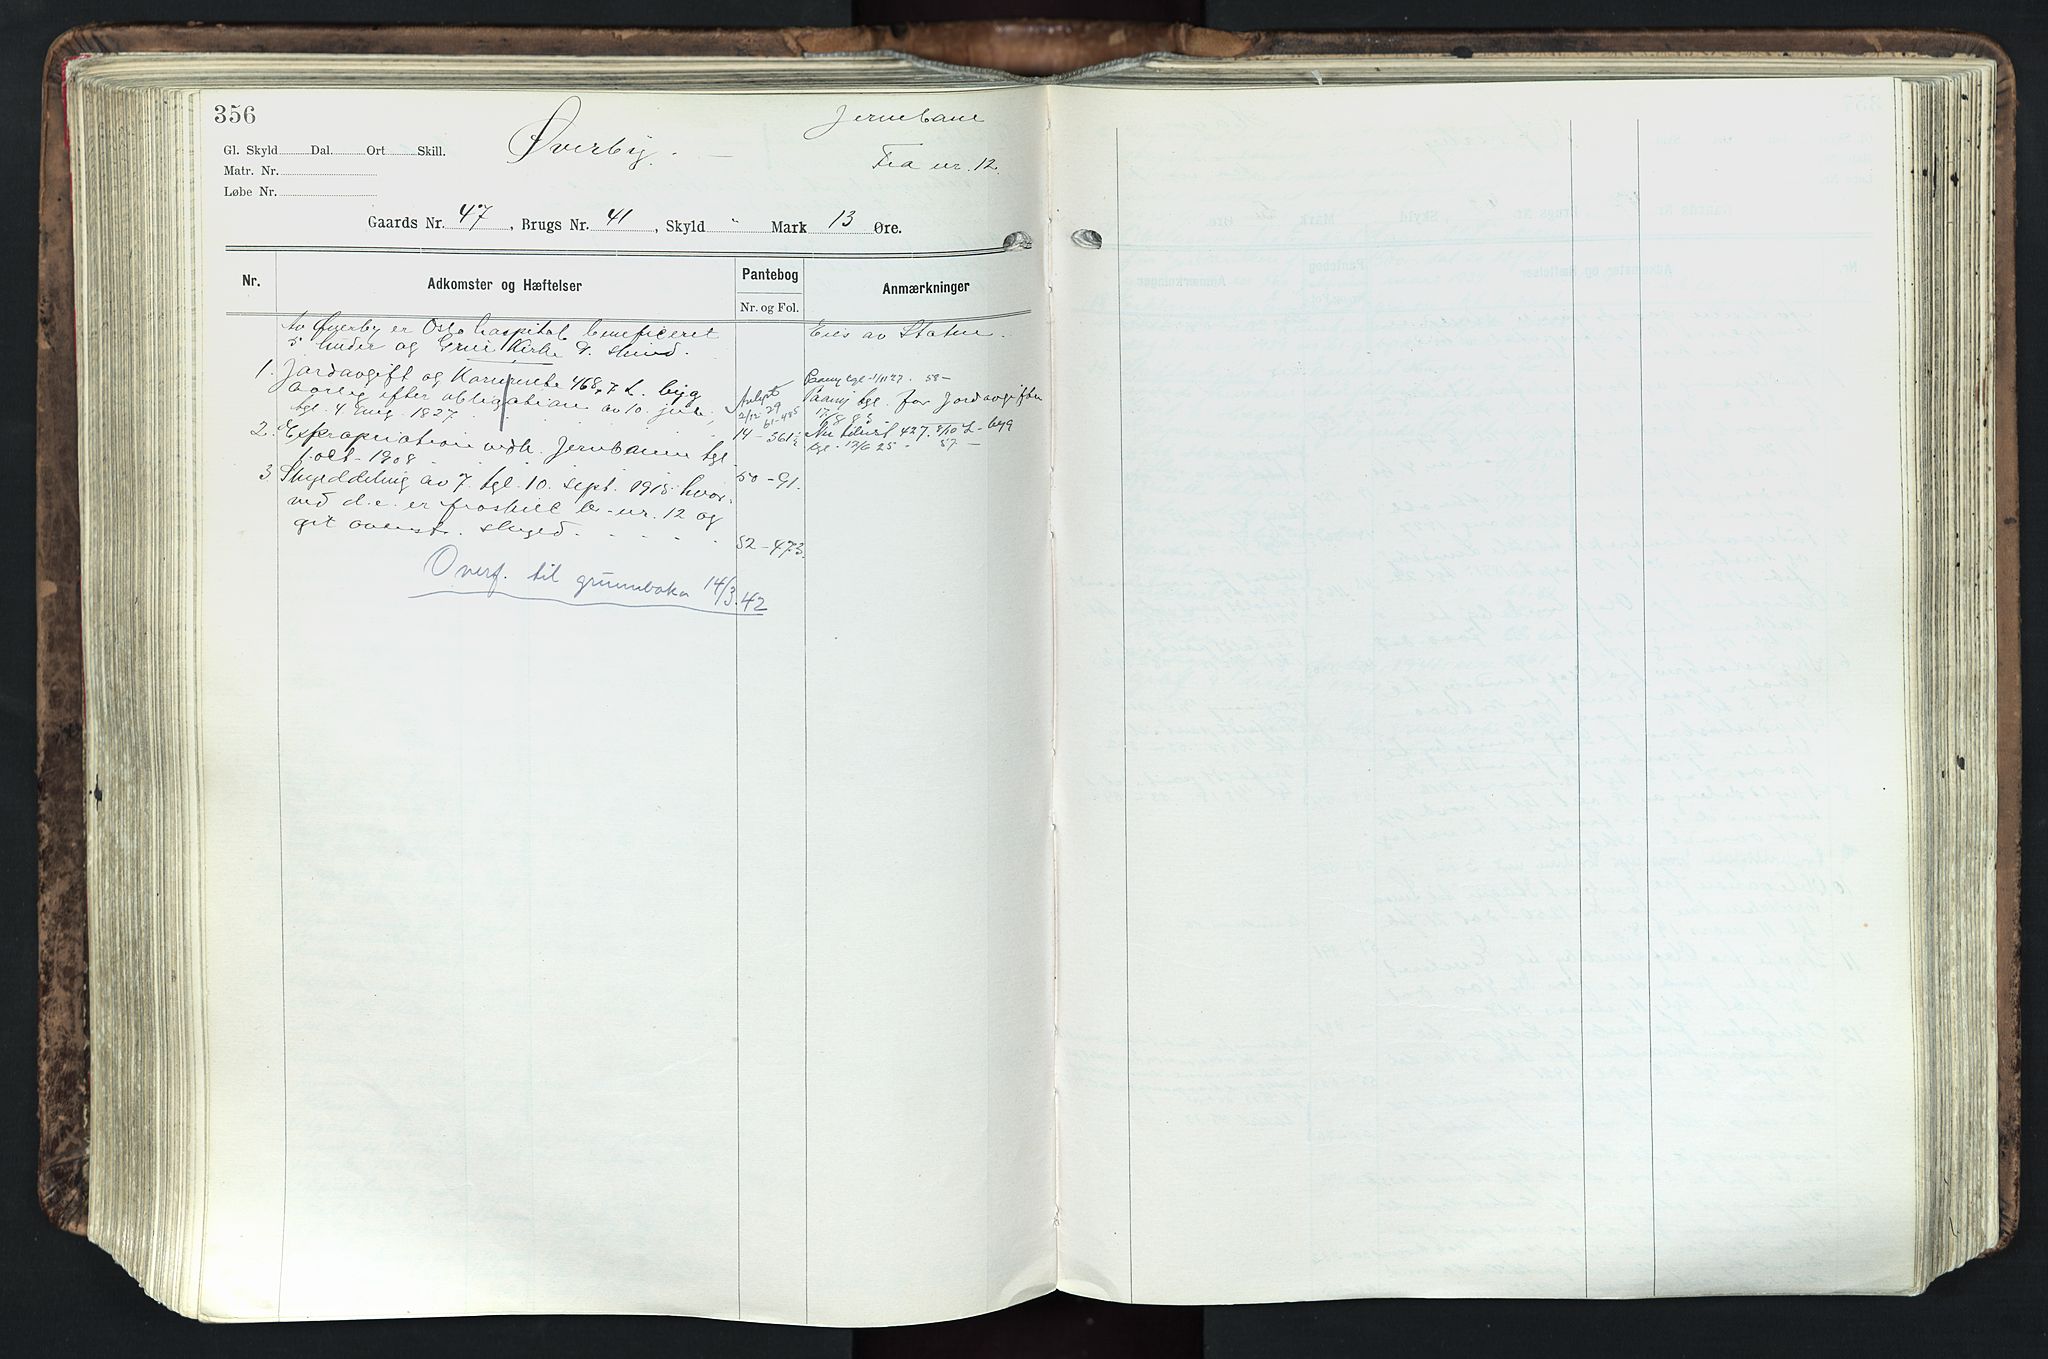 356
Øverby.
Jernebane
Fra nr. 12.
Gl. Skyld Dal. Ort Skill.
Matr. Nr.
Løbe Nr.
Gaards Nr. 47, Brugs Nr. 41, Skyld " Mark 13 Øre.
Nr.
Adkomster og Hæftelser
Pantebog
Nr. og Fol.
Anmærkninger
Av Øverby er Oslo hospital beneficeret
5 huder og Grue Kirke 9. skind.
Eies av Staten.
1. Jordavgift og Kornrente 468,7 L. byg
aarlig efter obligation av 10. juli,
tgl. 4 aug. 1827.
Avlyst
2/12 29
61-485
Paany tgl. 1/11 27. 58-
Paany tgl. for Jordavgiften
2. Expropriation vedk. Jernbanen tgl.
1. oct. 1908
14-561½
427. 8/10 L. byg
tgl. 13/6 25. 57-
3. Skylddeling av 7. tgl. 10. sept. 1915 hvor-
ved d. e. er fraskilt b.-nr. 12 og
git ovenst. skyld.
50-91.
52-473.
Overf. til grunnboka 14/3.42